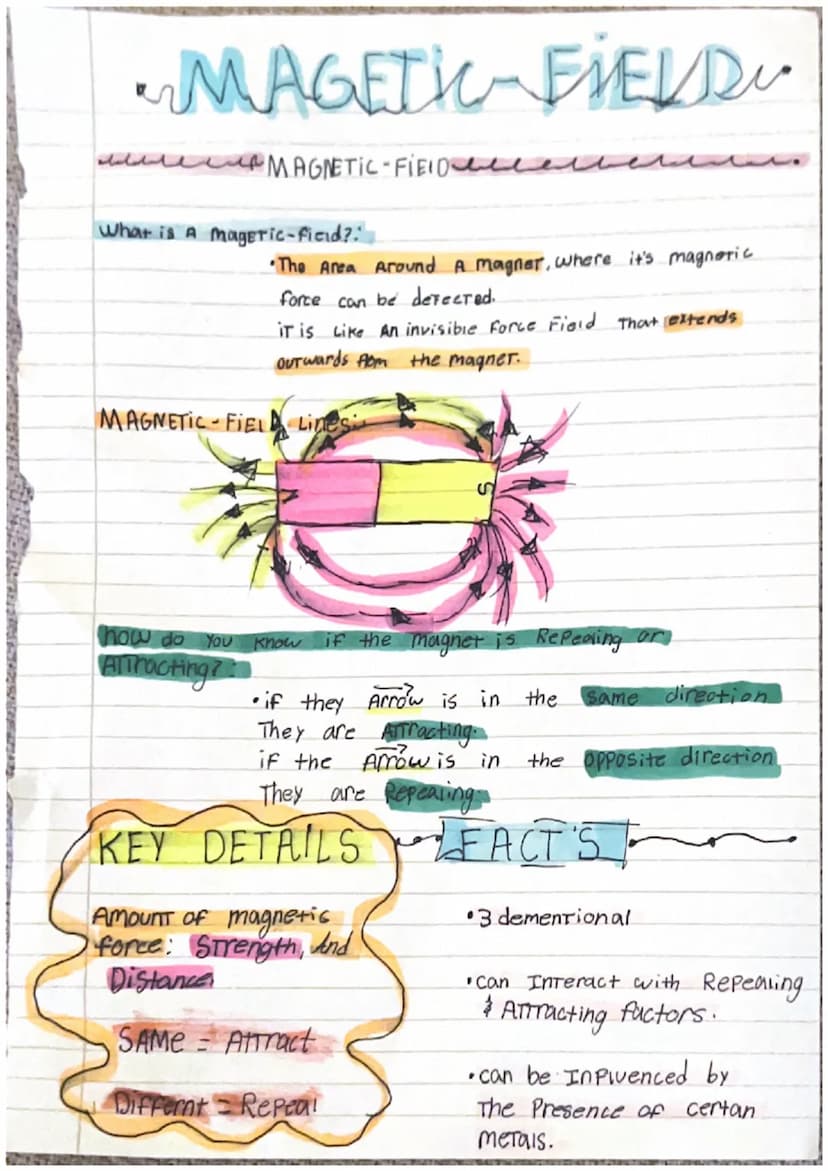 MAGETiC-FiELD
MAGNETiC-FiElD
What is A mageTic-field?:
•The Area Around A magneT, where it's magnetic
force can be deTecTed.
iT is Like An invisible Force Field That extends
ouTwards from the magneT.
MAGNETiC-FiELD Lines:
N S
how do you know if the magnet is Repealing or
ATTracting?:
•if they Arrow is in the same direction
They are ATTracting.
if the Arrow is in the opposite direction
They are Repealing.
KEY DETAILS
FACT'S
AmounT of magnetic
force: STrength, And
Distance
SAME = ATTract
Differnt = Repeal
•3 demenTional
•can InTeract with Repealing
& ATTracting factors.
•can be Influenced by
The Presence of certan
meTals.